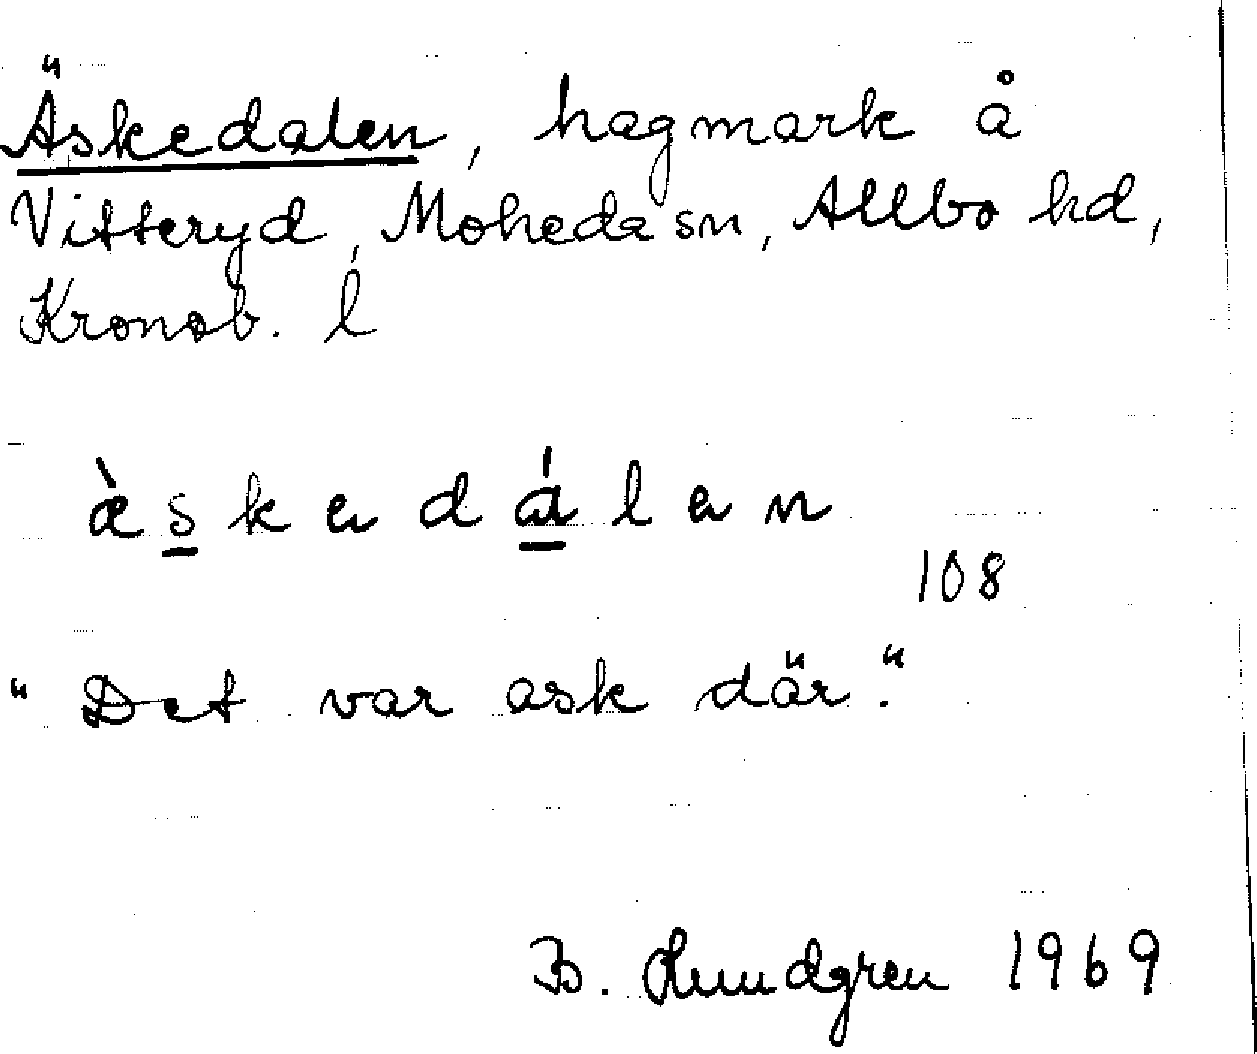 Äskedalen, hagmark å
Vitteryd, Moheda sn, Allbo hd,
Kronob. l
æ̀skedálen
108
"Det var ask där."
B. Lundgren 1969